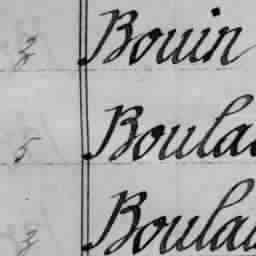 3 Bouin
5 Boula
3 Boula